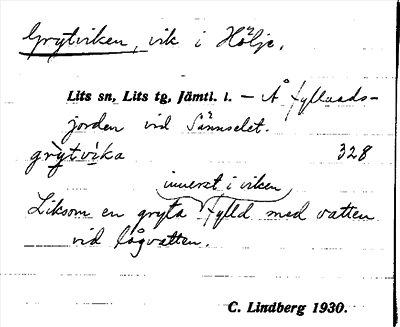 Grytviken, vik i Hölje.
Lits sn, Lits tg, Jämtl. l. – Å Fyllnads-
jorden vid Sännselet.
grytvika 328
innerst i viken
Liksom en gryta fylld med vatten
vid lågvatten.
C. Lindberg 1930.